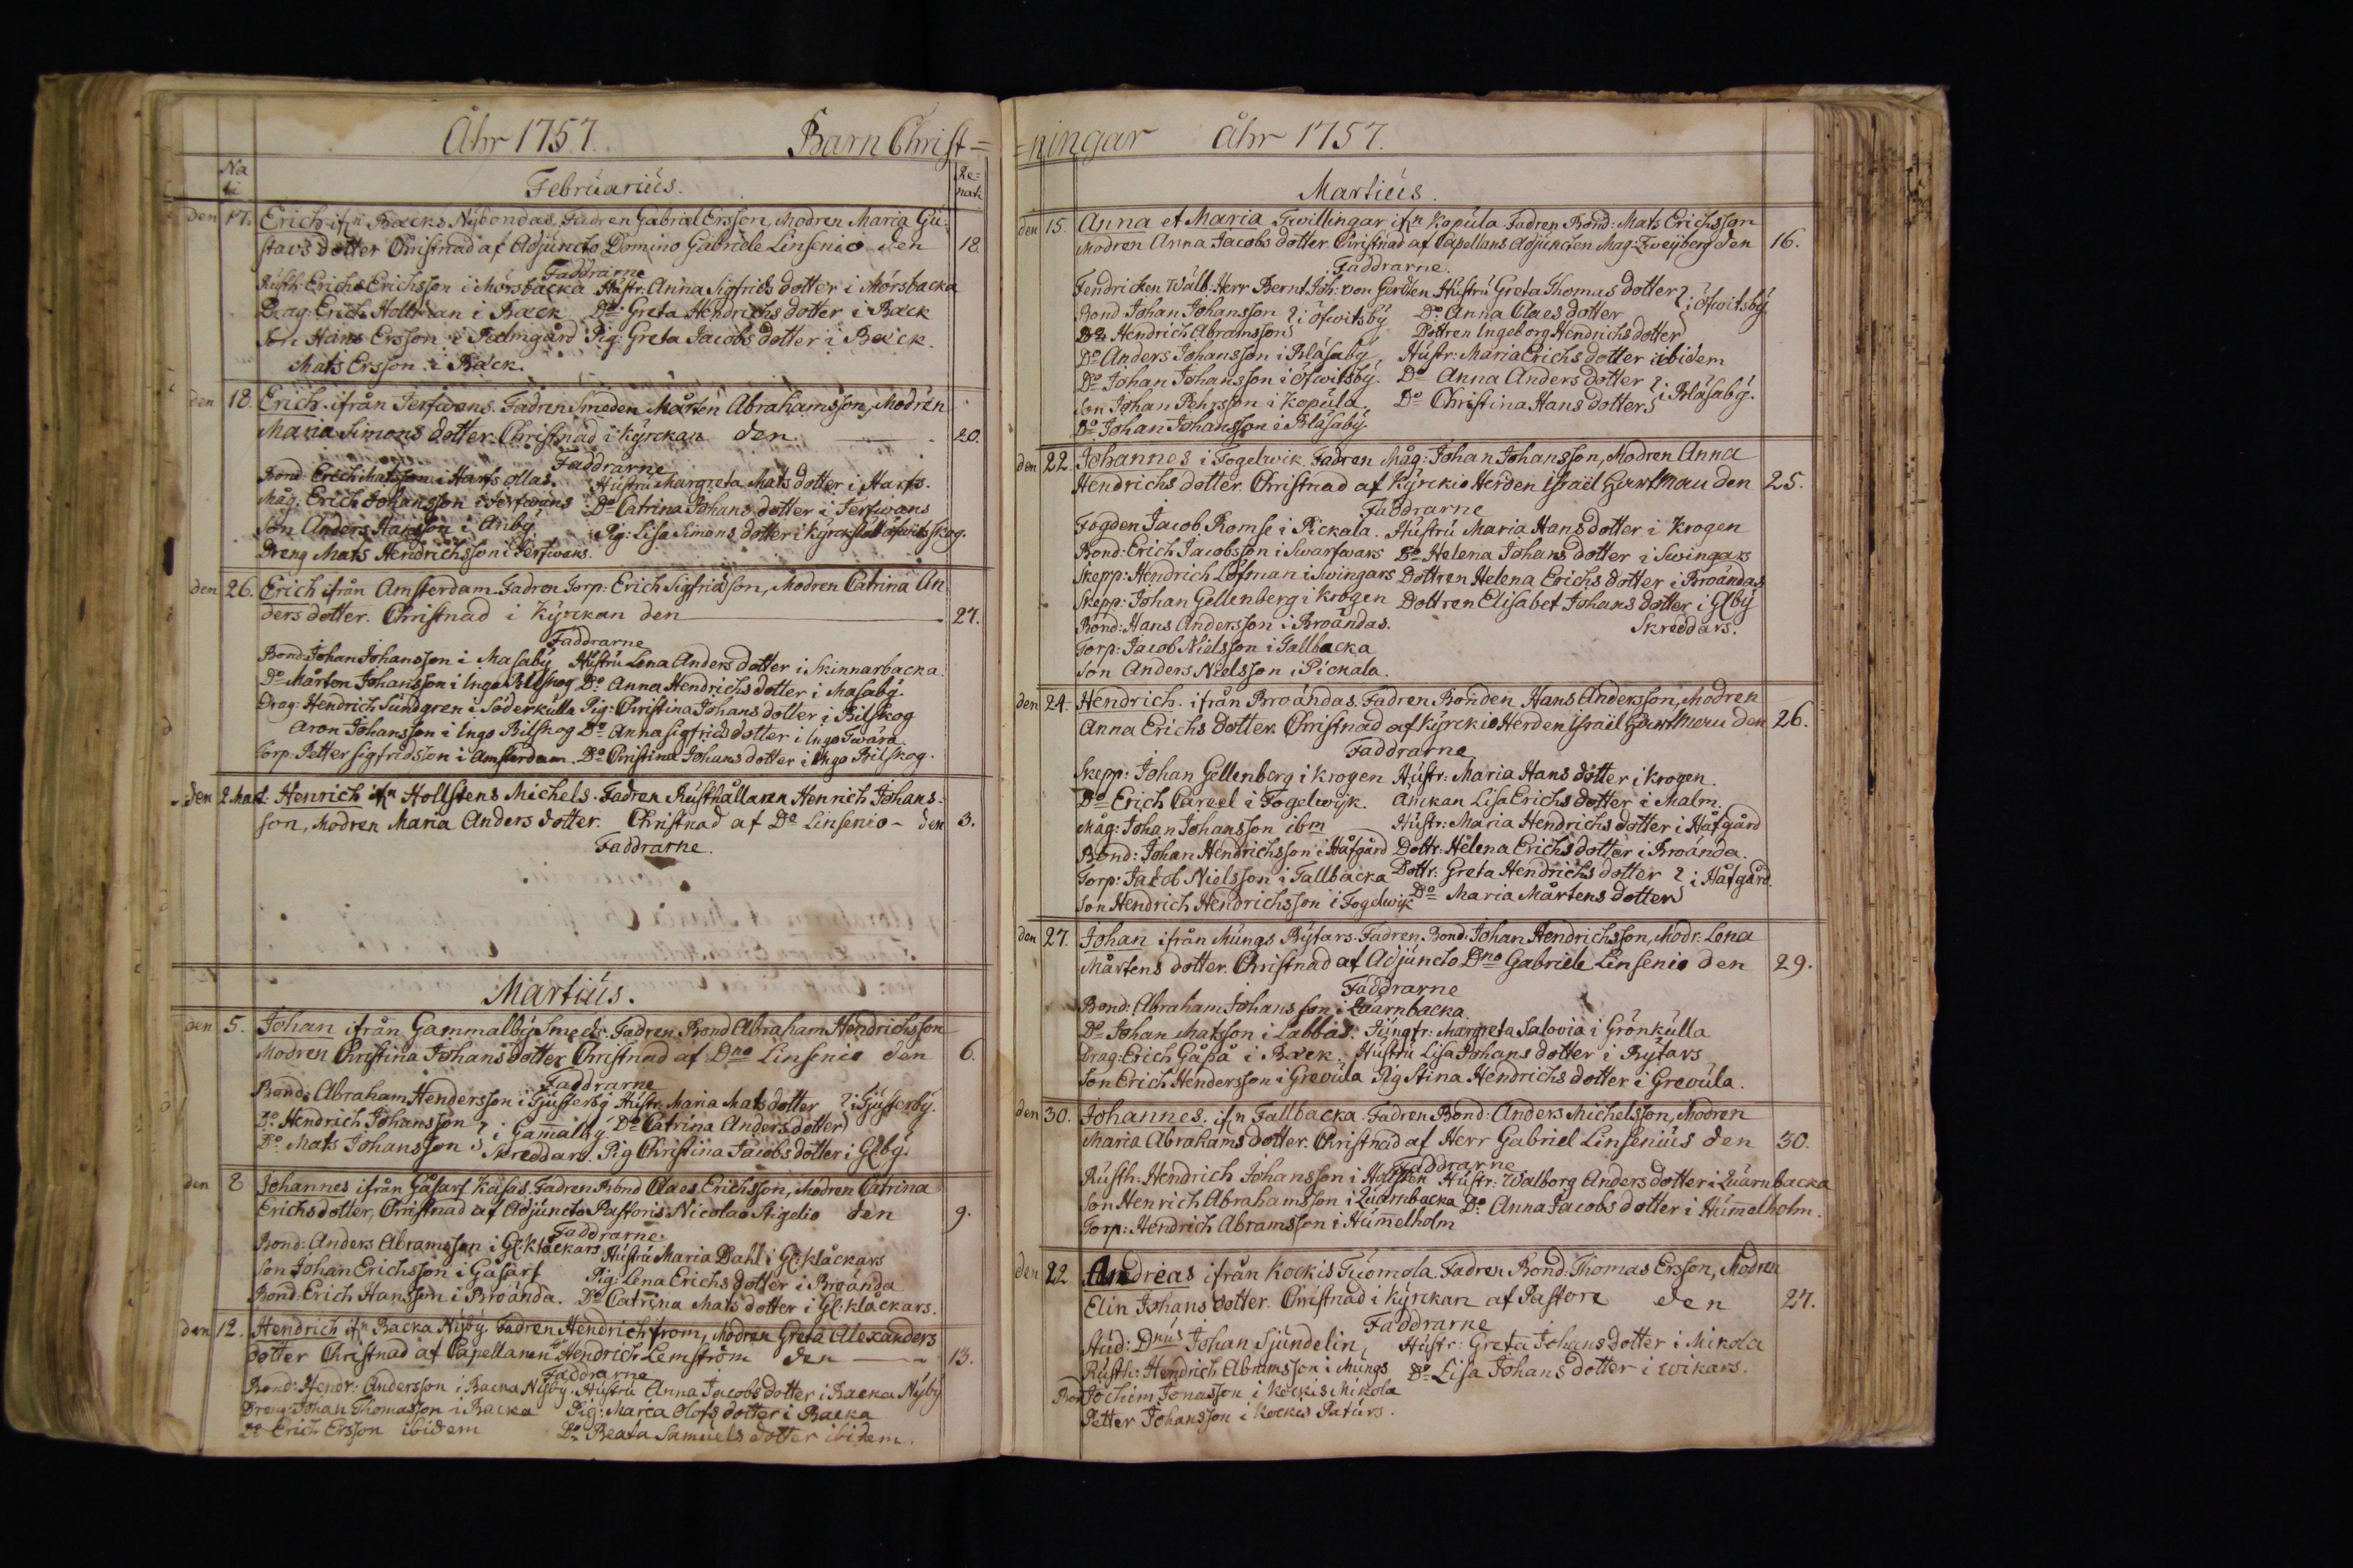 Åhr 1757. Barn Christ=
Na
ti
Februarius.
Re=
nati
den 17. Erich ifn Backs Nybondas, Fadren Gabriel Ersson, Modren Maria Gu-
stavs dotter Christnad af Adjuncto Domino Gabriele Linsenio den 18.
Faddrarne
Rusth: Erich Erichsson i Morsbacka Hustr: Anna Sigfrids dotter i Morsbacka
Drag: Erich Holttman i Back Do: Greta Hendrichs dotter i Back
Son Hans Ersson i Palmgård Pig: Greta Jacobs dotter i Back.
Mats Ersson i Back.
den 18. Erich ifrån Jerfwens. Fadren Smeden Mårten Abrahamsson, Modren
Maria Simons dotter. Christnad i Kyrckan den 20.
Faddrarne
Bond: Erich Matsson i Harfs ollas. Hustru Margreta Mats dotter i Harfs.
Måg: Erich Johansson i Jerfwens Do Catrina Johans dotter i Jerfwens
Son Anders Hansson i Anby Pig: Lisa Simons dotter i Kyrckslätt öfwitsskog.
Dreng Mats Hendrichsson i Jerfwens.
den 26. Erich ifrån Amsterdam. Fadren Torp: Erich Sigfridsson, Modren Catrina An-
ders dotter. Christnad i Kyrckan den 27.
Faddrarne
Bond: Johan Johansson i Masaby Hustru Lena Anders dotter i Skinnarbacka.
Do Mårten Johansson i Inga Bilskog Do Anna Hendrichs dotter i Masaby.
Drag: Hendrich Sundgren i Söderkulla Pig: Christina Johans dotter i Bilskog
Aron Johansson i Inga Bilskog Do Anna Sigfrids dotter i Inga Twära
Torp: Petter Sigfridsson i Amsterdam. Do Christina Johans dotter i Inga Bilskog.
den 2. Mart: Henrich ifn Hollstens Michels. Fadren Rusthållaren Henrich Johans-
son, Modren Maria Anders dotter. Christnad af Do Linsenio - den 3.
Faddrarne.
Martius.
den 5. Johan ifrån Gammalby Smeds. Fadren Bond Abraham Hendrichsson
Modren Christina Johans dotter Christnad af Dno Linsenio den 6.
Faddrarne
Bond: Abraham Hendersson i Gjusterby Hustr. Maria Mats dotter } i Gjusterby.
Do Hendrich Johansson } i Gam̄alby Do Catrina Anders dotter
Do Mats Johansson Skreddars. Pig Christina Jacobs dotter i Glby.
den 8 Johannes ifrån Gåsarf Kasas. Fadren Bond Claes Erichsson, Modren Catrina
Erichs dotter, Christnad af Adjuncto Pastoris Nicolao Stigelio den 9.
Faddrarne.
Bond: Anders Abramsson i Gl: klåckars Hustru Maria Dahl i Gl: klåckars
Son Johan Erichsson i Gåsarf Pig: Lena Erichs dotter i Broända
Bond: Erich Hansson i Broända. Do Catrina Mats dotter i Gl: klåckars.
den 12. Hendrich ifn Backa Nyby. Fadren Hendrich from, Modren Greta Alexanders
dotter Christnad af Capellanen Hendrich Lemström den 13.
Faddrarne
Bond: Hendr: Andersson i Backa Nyby. Hustru Anna Jacobs dotter i Backa Nyby
Dreng: Johan Thomasson i Backa Pig: Maria Olofs dotter i Backa
Do Erich Ersson ibidem Do Beata Samuels dotter ibidem.
=ningar åhr 1757.
Martius.
den 15. Anna et Maria Twillingar ifn Kopula Fadren Bond: Mats Erichsson
Modren Anna Jacobs dotter. Christnad af Capellans Adjuncten Mag: Zweyberg den 16.
Faddrarne.
Fendricken Wälb: Herr Bernt Joh: von Gerdten Hustru Greta Thomas dotter } i öfwitsby
Bond Johan Johansson } i öfwitsby Do Anna Claes dotter
Do Hendrich Abramsson Dottren Ingeborg Hendrichs dotter
Do Anders Johansson i Blåsaby, Hustr: Maria Erichs dotter ibidem
Do Johan Johansson i öfwitsby. Do Anna Anders dotter } i Blåsaby.
Son Johan Pehrsson i Kopula. Do Christina Hans dotter
Do Johan Johansson i Blåsaby.
den 22. Johannes i Fogelwik. Fadren Måg: Johan Johansson, Modren Anna
Hendrichs dotter. Christnad af Kyrckio Herden Israël Hartman den 25.
Faddrarne
Fogden Jacob Romse i Pickala. Hustru Maria Hans dotter i Krogen
Bond: Erich Jacobsson i Swarfwars Do Helena Johans dotter i Swingars
Skepp: Hendrich Löfman i Swingars Dottren Helena Erichs dotter i Broändas
Skepp: Johan Gellenberg i Krogen Dottren Elisabet Johans dotter i Glby
Bond: Hans Andersson i Broändas. Skreddars.
Torp: Jacob Nielsson i Tallbacka
Son Anders Nielsson i Pickala.
den 24. Hendrich ifrån Broändas. Fadren Bonden Hans Andersson, Modren
Anna Erichs dotter. Christnad af Kyrckio Herden Israël Hartman den 26.
Faddrarne
Skepp: Johan Gellenberg i Krogen Hustr: Maria Hans dotter i Krogen.
Do Erich Careel i Fogelwyk. Am̄kan Lisa Erichs dotter i Malm.
Måg: Johan Johansson ibm Hustr: Maria Hendrichs dotter i Håfgård
Bond: Johan Hendrichsson i Håfgård Dottr: Helena Erichs dotter i Broända.
Torp: Jacob Nielsson i Tallbacka Dottr: Greta Hendrichs dotter } i Håfgård.
Son Hendrich Hendrichsson i Fogelwik Do Maria Mårtens dotter
den 27. Johan ifrån Mungs Bytars. Fadren Bond: Johan Hendrichsson, Modr. Lena
Mårtens dotter. Christnad af Adjuncto Dno Gabriele Linsenio den 29.
Faddrarne
Bond: Abraham Johansson i Quarnbacka.
Do Johan Matsson i Labbas. Jungfr: Margreta Salovia i Grönkulla
Drag: Erich Gåpå i Back. Hustru Lisa Johans dotter i Bytars
Son Erich Hendersson i Grevula Pig Stina Hendrichs dotter i Grevula.
den 30. Johannes. ifn Tallbacka. Fadren Bond: Anders Michelsson, Modren
Maria Abrahams dotter. Christnad af Herr Gabriel Linsenius den 30.
Faddrarne
Rusth: Hendrich Johansson i Hollsten Hustr: Walborg Anders dotter i Quarnbacka
Son Henrich Abrahamsson i Quarnbacka Do Anna Jacobs dotter i Hum̄elholm.
Torp: Hendrich Abramsson i Hum̄elholm
den 22 Andreas ifrån Kockis Tuomola. Fadren Bond: Thomas Ersson, Modren
Elin Johans dotter. Christnad i Kyrckan af Pastore den 27.
Faddrarne
Stud: Dnus Johan Sjundelin, Hustr: Greta Johans dotter i Mikola
Rusth: Hendrich Abramsson i Mungs Do Lisa Johans dotter i Wikars.
Bond Jochim Jonasson i Kockis Mikola
Petter Johansson i Kockis Paturs.